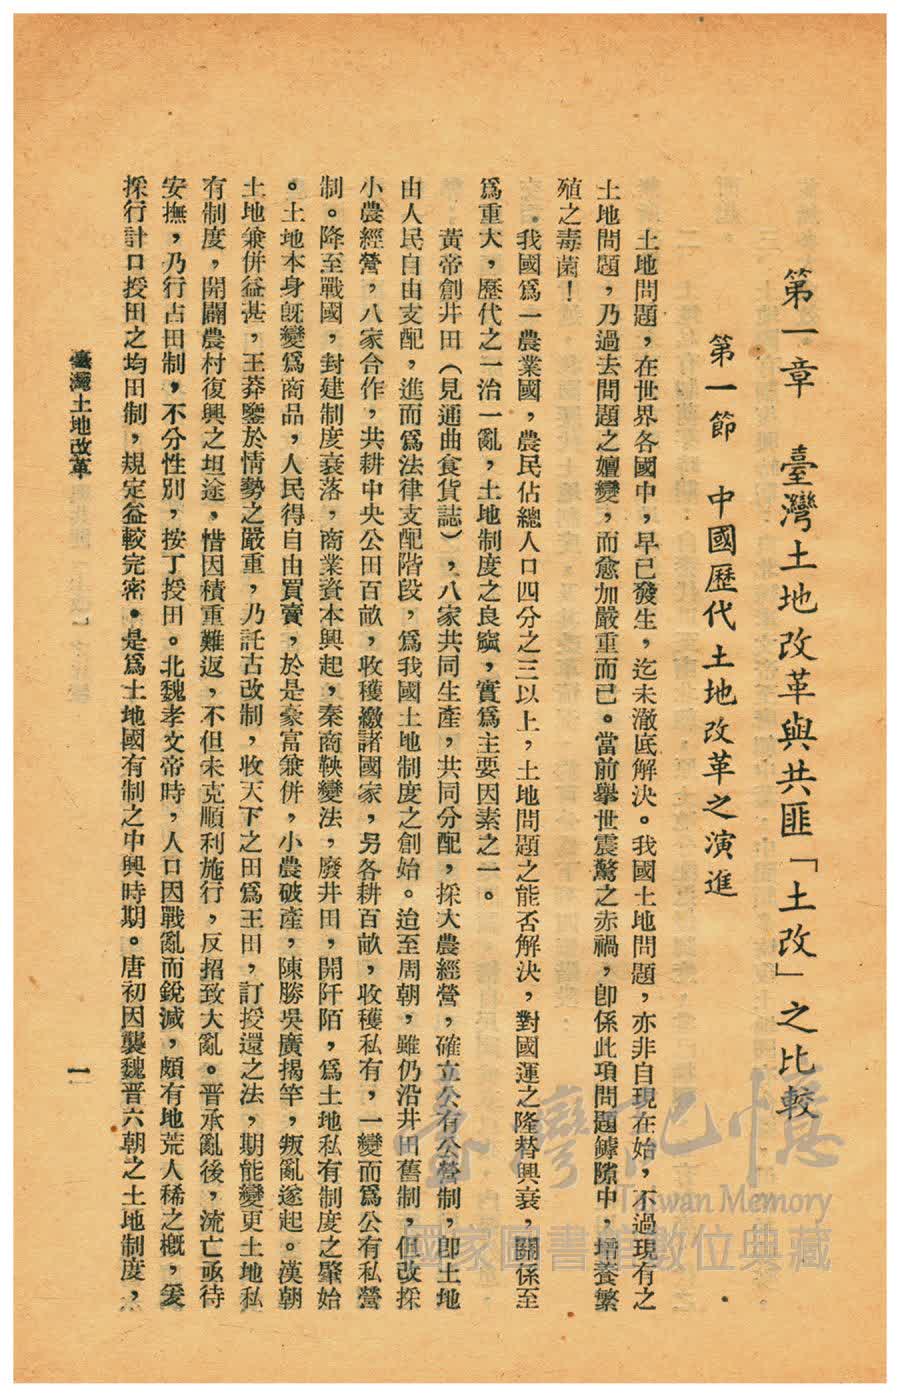 第一章　臺灣土地改革與共匪「土改」之比較
第一節　中國歷代土地改革之演進
土地問題，在世界各國中，早已發生，迄未澈底解決。我國土地問題，亦非自現在始，不過現有之
土地問題，乃過去問題之嬗變，而愈加嚴重而已。當前舉世震驚之赤禍，即係此項問題罅隙中，增養繁
殖之毒菌！
我國爲一農業國，農民佔總人口四分之三以上，土地問題之能否解決，對國運之隆替興衰，關係至
爲重大，歷代之一治一亂，土地制度之良窳，實爲主要因素之一。
黃帝創井田（見通曲食貨誌），八家共同生產，共同分配，採大農經營，確立公有公營制，即土地
由人民自由支配，進而爲法律支配階段，爲我國土地制度之創始。迨至周朝，雖仍沿井田舊制，但改採
小農經營，八家合作，共耕中央公田百畝，收穫繳諸國家，另各耕百畝，收穫私有，一變而爲公有私營
制。降至戰國，封建制度衰落，商業資本興起，秦商鞅變法，廢井田，開阡陌，爲土地私有制度之肇始
。土地本身旣變爲商品，人民得自由買賣，於是豪富兼併，小農破產，陳勝吳廣揭竿，叛亂遂起。漢朝
土地兼併益甚，王莽鑒於情勢之嚴重，乃託古改制，收天下之田爲王田，訂授還之法，期能變更土地私
有制度，開闢農村復興之坦途，惜因積重難返，不但未克順利施行，反招致大亂。晉承亂後，流亡亟待
安撫，乃行占田制，不分性別，按丁授田。北魏孝文帝時，人口因戰亂而銳減，頗有地荒人稀之概，爰
採行計口授田之均田制，規定益較完密。是爲土地國有制之中興時期。唐初因襲魏晋六朝之土地制度，
臺灣土地改革
一
臺灣記憶
Taiwan Memory
國家圖書館數位典藏